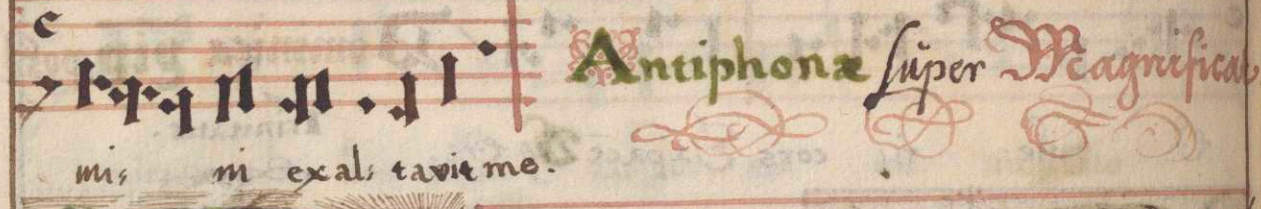 Antiphonæ super Magnificat
mi: ni exal: tavit me.